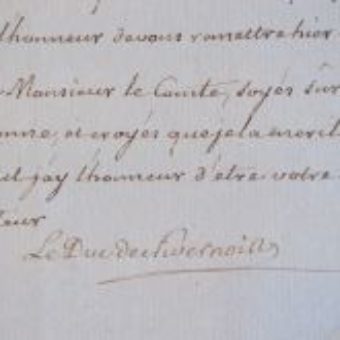 l'honneur de vous remettre hier
Monsieur le Comte, soyés sûr
et croyés que je la merite
jay l'honneur d'être votre
teur
Le Duc de